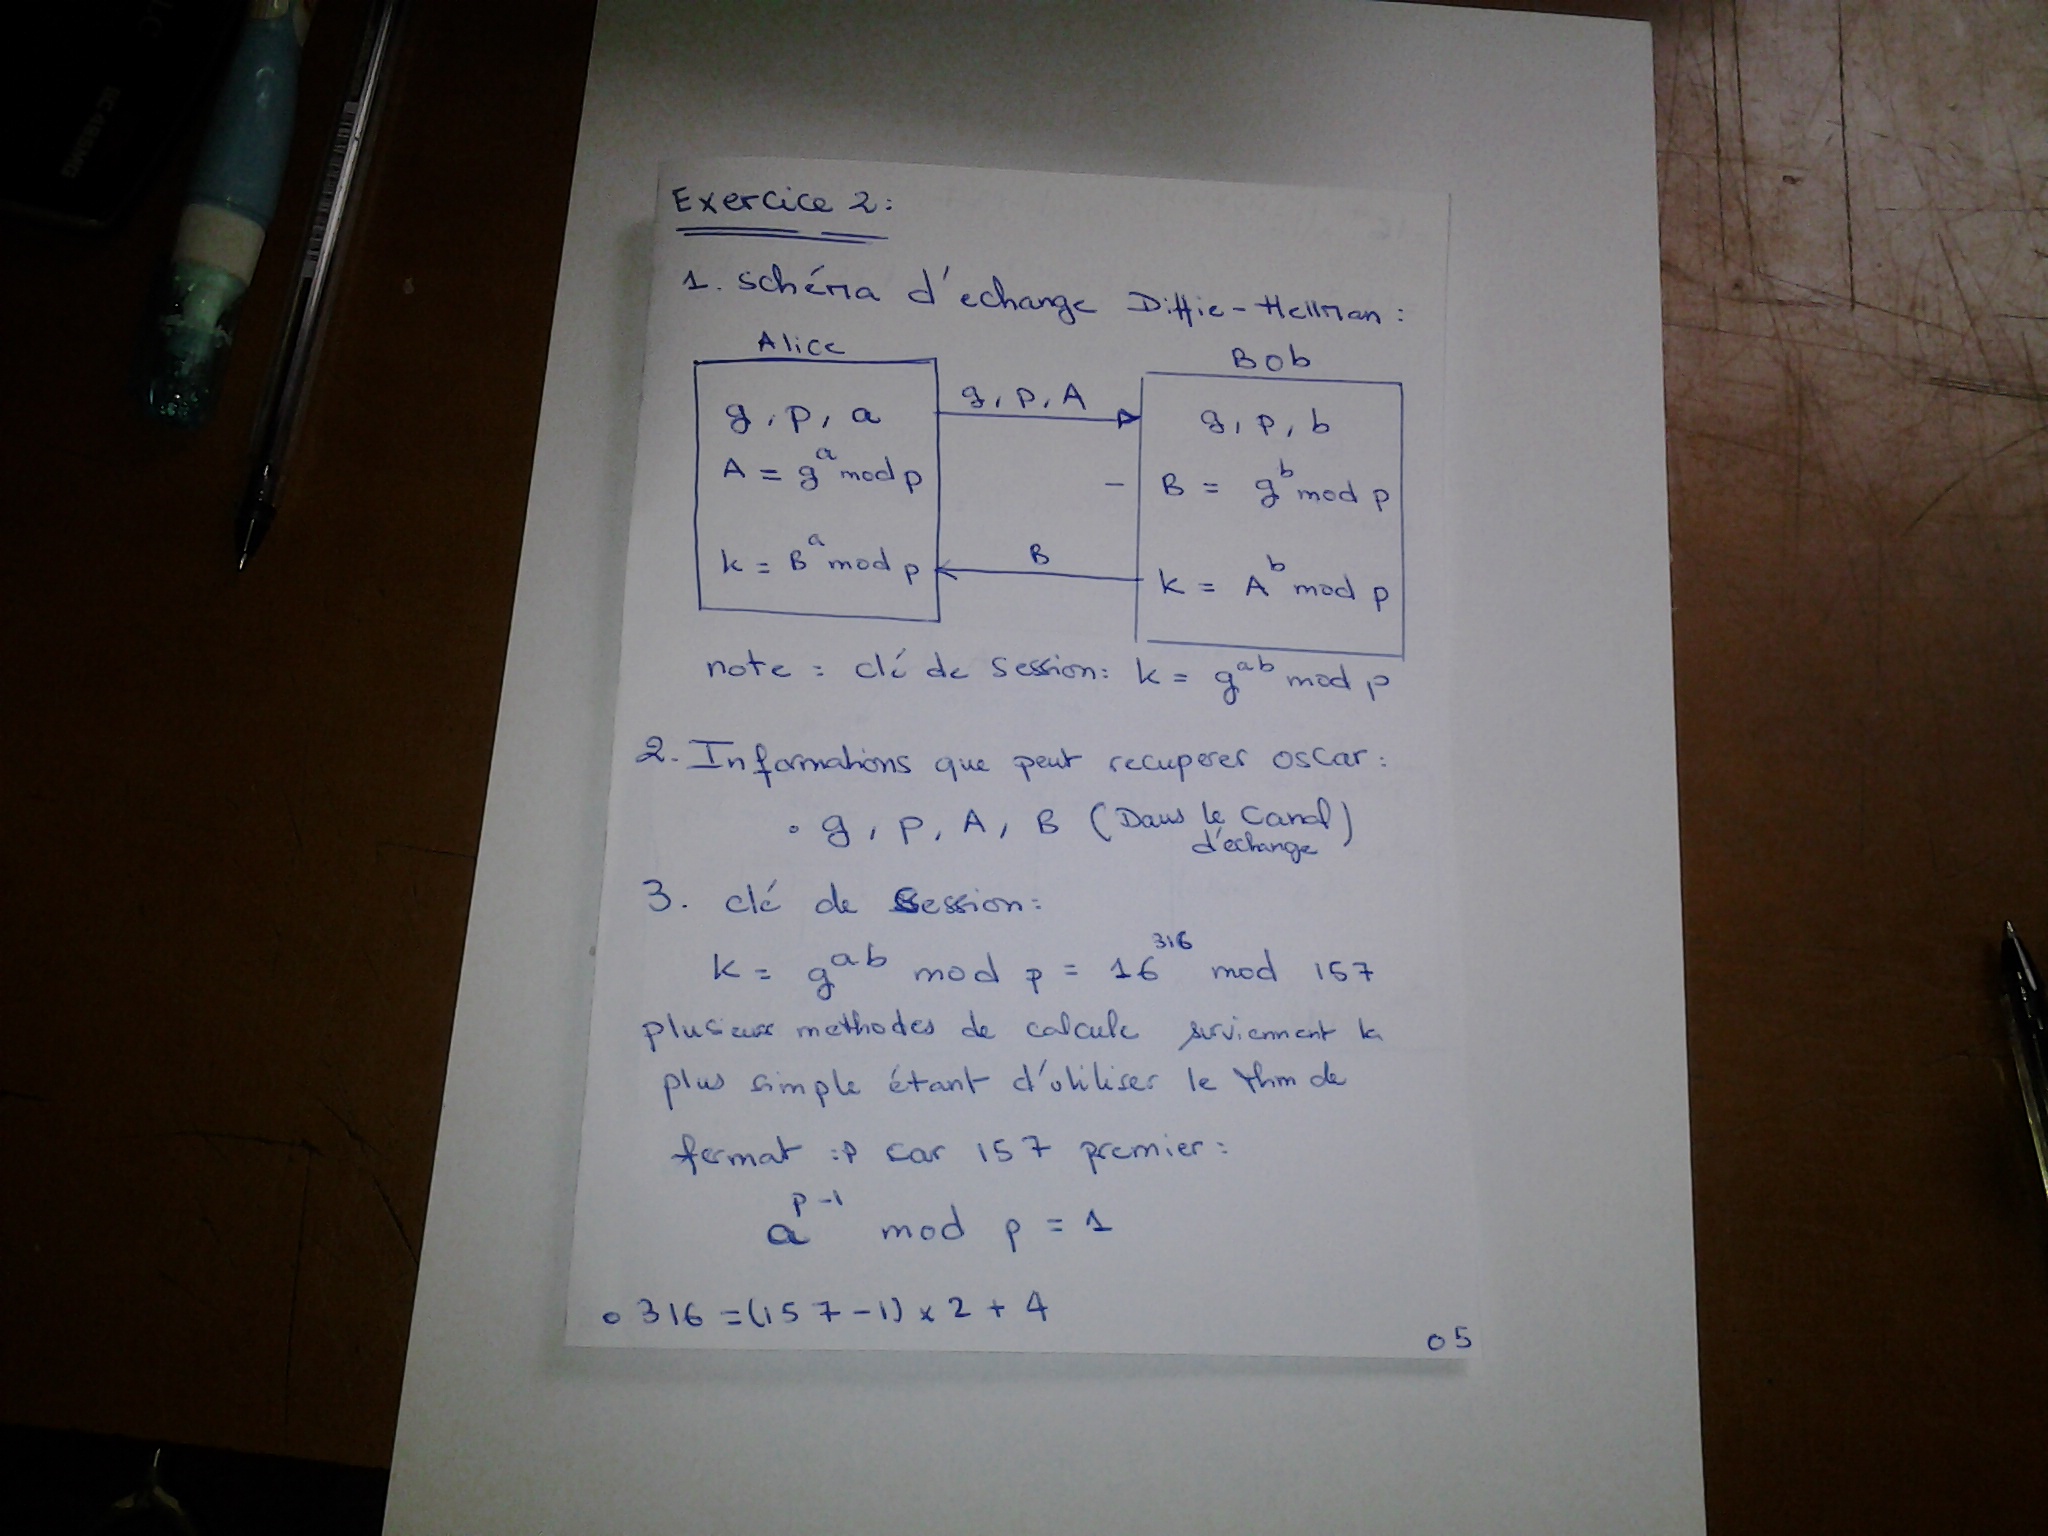 Exercice 2:
1. schéma d'echange Diffie-Hellman:
Alice
Bob
g, p, a
g, p, A
g, p, b
A = g^a mod p
- B = g^b mod p
k = B^a mod p
B
k = A^b mod p
note : clé de session: k = g^ab mod p
2. Informations que peut recuperer oscar:
• g, p, A, B (Dans le Canal)
d'échange
3. clé de Session:
k = g^ab mod p = 16^316 mod 157
plusieurs methodes de calcule surviennent la
plus simple étant d'utiliser le thm de
fermat :p car 157 premier:
a^p-1 mod p = 1
• 316 = (157-1) x 2 + 4
05